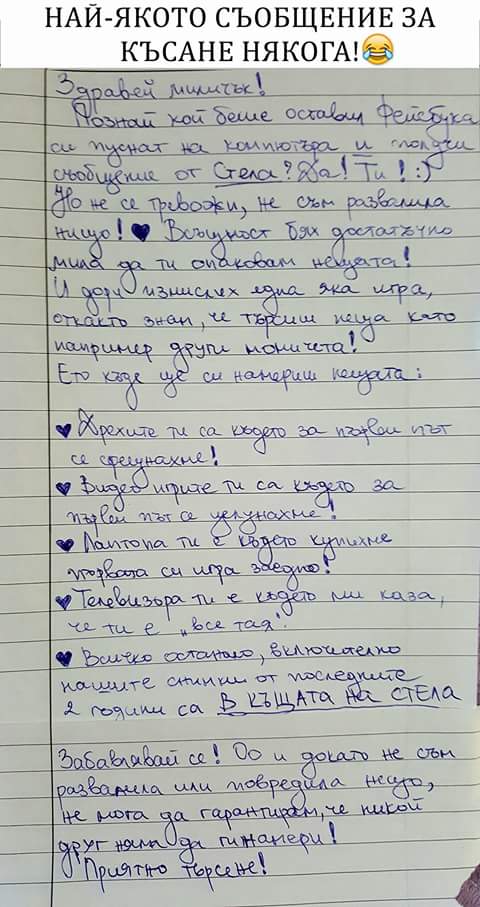 НАЙ-ЯКОТО СЪОБЩЕНИЕ ЗА
КЪСАНЕ НЯКОГА!😂
Здравей миличък!
Познай кой беше оставил Фейсбука
си пуснат на компютъра и получи
съобщение от Стела? Да! Ти! :)
Но не се тревожи, не съм развалила
нищо! ♥ Всъщност бях достатъчно
мила да ти опаковам нещата!
И дори измислих една яка игра,
откакто знам, че търсиш неща като
например други момичета!
Ето къде ще си намериш нещата:
♥ Дрехите ти са където за първи път
се срещнахме!
♥ Видео игрите ти са където за
първи път се целунахме!
♥ Лаптопа ти е където купихме
първата си игра заедно!
♥ Телевизъра ти е където ми каза,
че ти е „все тая".
♥ Всичко останало, включително
нашите снимки от последните
2 години са В КЪЩАТА НА СТЕЛА
Забавлявай се! Оо и докато не съм
развалила или повредила нещо,
не мога да гарантирам, че никой
друг няма да ги намери!
Приятно търсене!